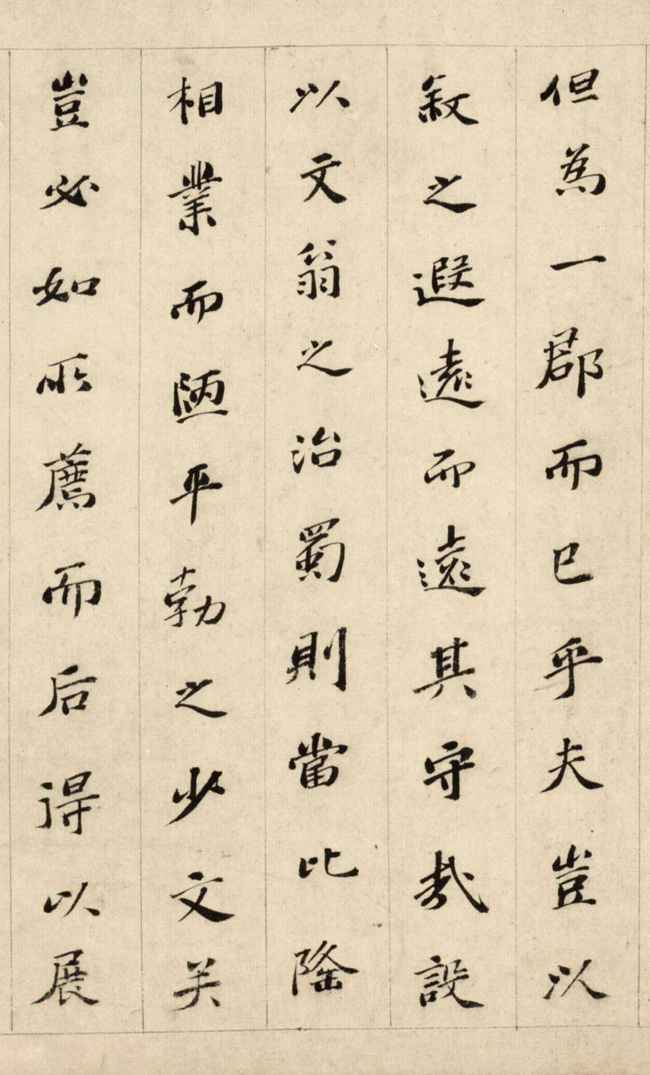 但為一郡而已乎夫豈以
敘之遐遠而遠其守哉設
以文翁之治蜀則當比隆
相業而陋平勃之少文矣
豈必如所薦而后得以展